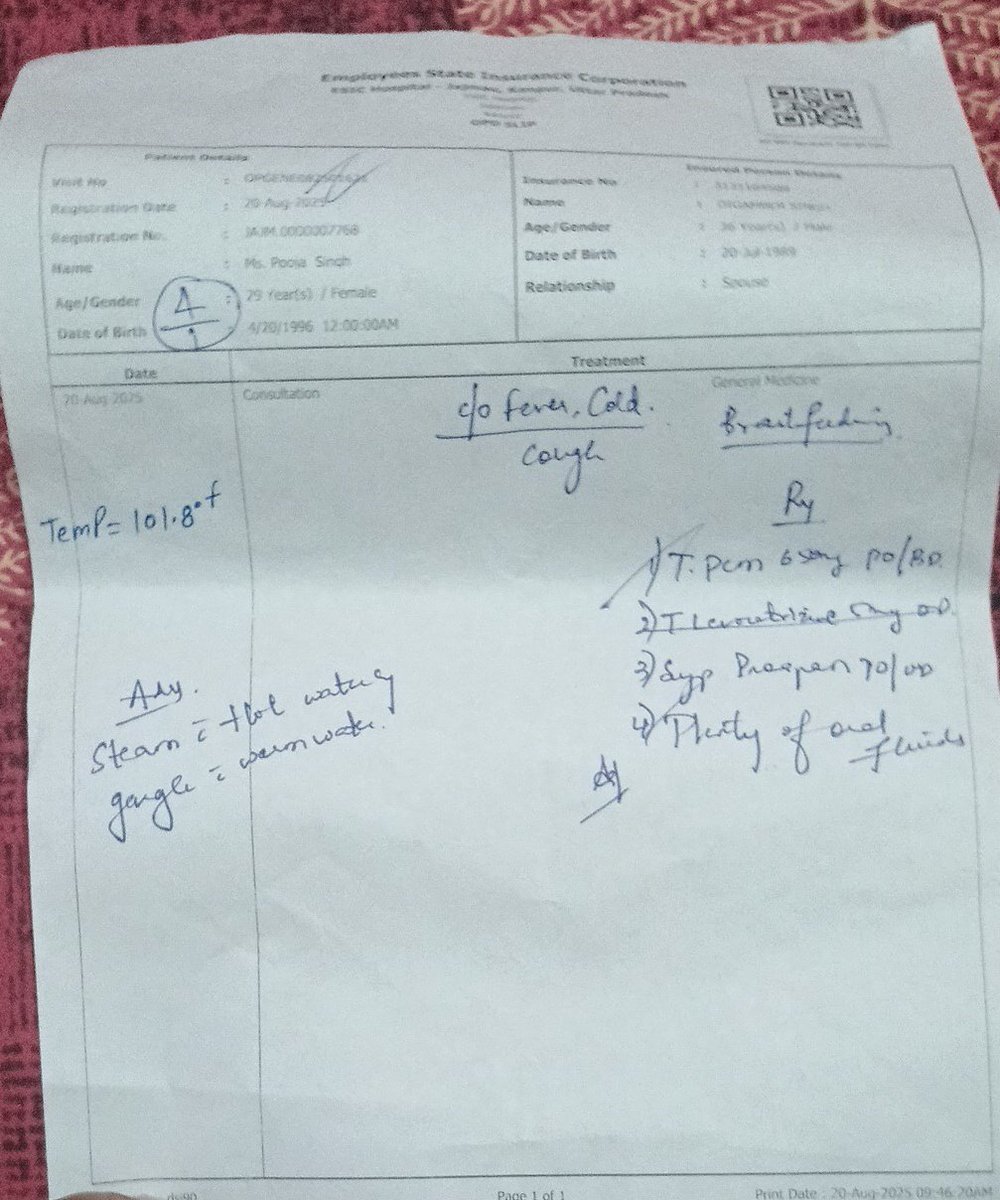 Employees State Insurance Corporation
ESIC Hospital - Jajmau, Kanpur, Uttar Pradesh
OPD SLIP
Patient Details
Insured Person Details
Visit No :
Insurance No :
Registration Date : 20-Aug-2025
Name :
Registration No. : JAJM.0000007768
Age/Gender : 36 Year(s) / Male
Name : Ms. Pooja Singh
Date of Birth : 20-Jul-1989
Age/Gender : 29 Year(s) / Female
Relationship : Spouse
Date of Birth : 4/20/1996 12:00:00AM
4
1
Date
Treatment
20-Aug-2025
Consultation
General Medicine
c/o fever, Cold.
Cough
Breastfeeding
Temp = 101.8°f
Rx
1) T. Pcm 650mg PO/BD.
2) T Levocetrizine 5mg OD.
3) Syp
4) Plenty of oral
fluids
Adv.
Steam c̄ Hot
gargle c̄ warm water.
Page 1 of 1
Print Date : 20-Aug-2025 09:46:20AM